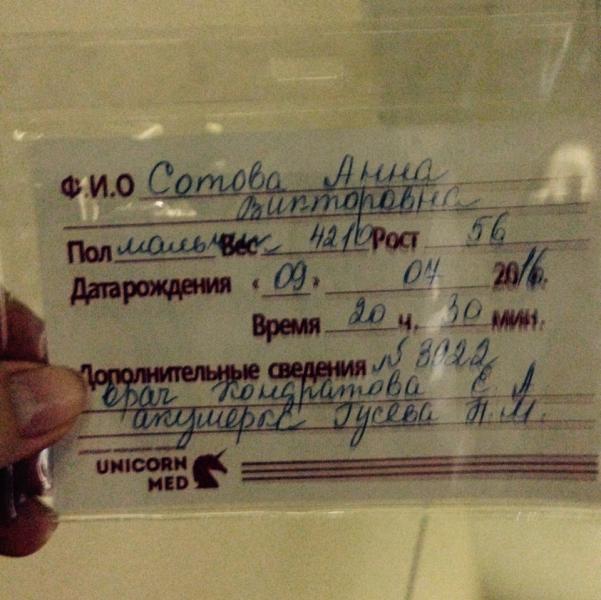 Ф.И.О Сотова Анна
Викторовна
Пол мальчик Вес 4210 Рост 56
Дата рождения «09» 04 2016.
Время 20 ч. 30 мин.
Дополнительные сведения № 3022
врач Кондратова Е. А.
акушерка Гусева Н. М.
UNICORN
MED